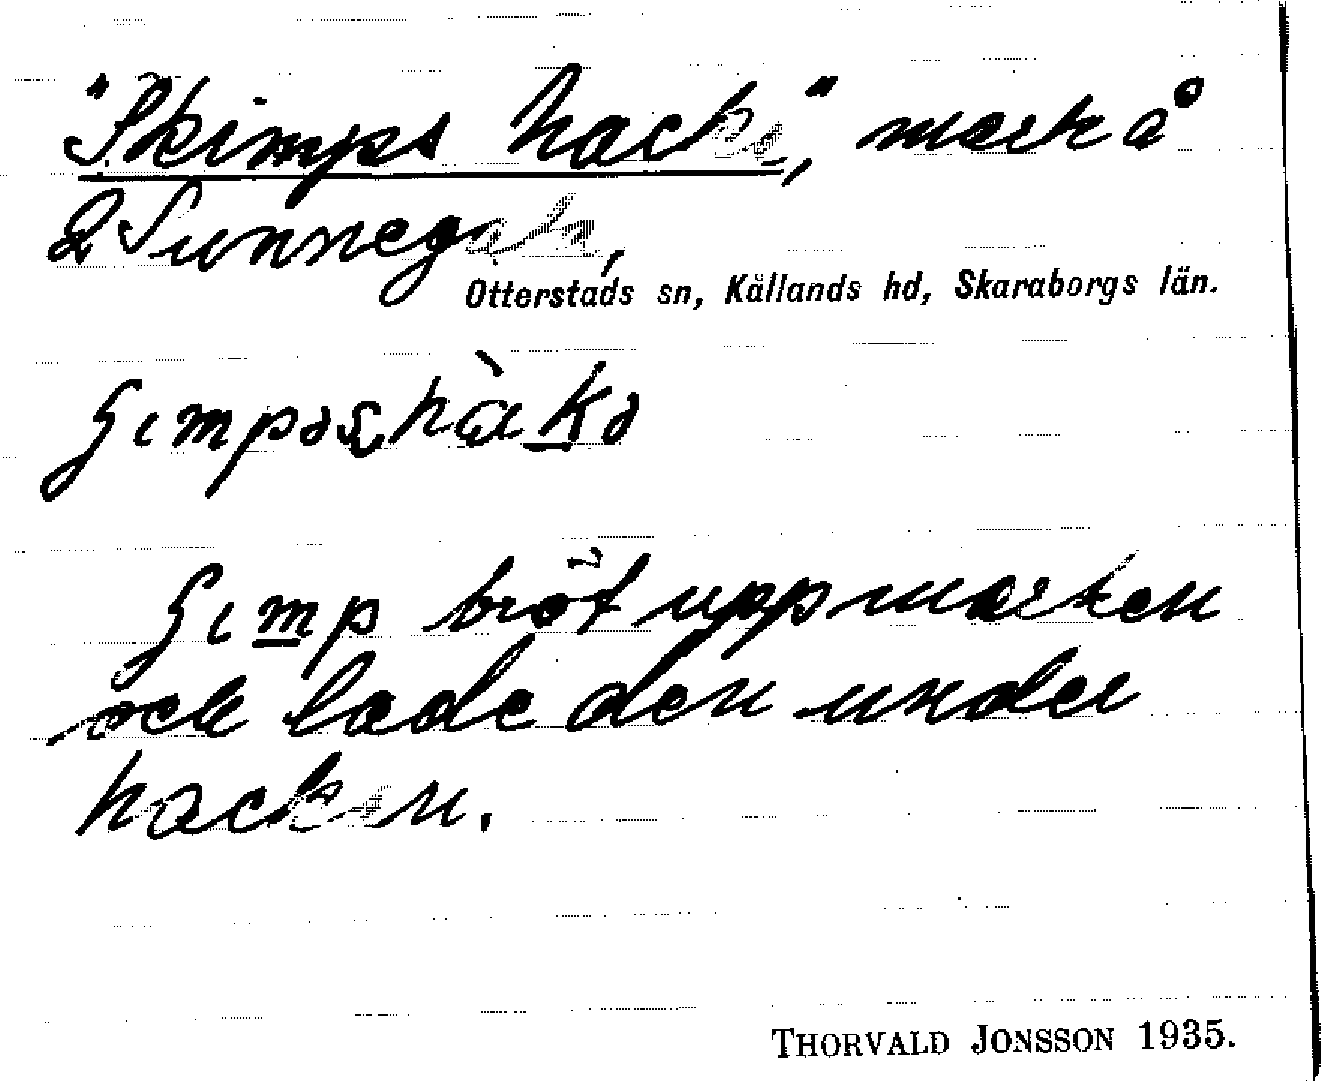 "Skimps hacke", mark å
2 Sunnegåln,
Otterstads sn, Kållands hd, Skaraborgs län.
bröt upp marken
och lade den under
hacken.
THORVALD JONSSON 1935.